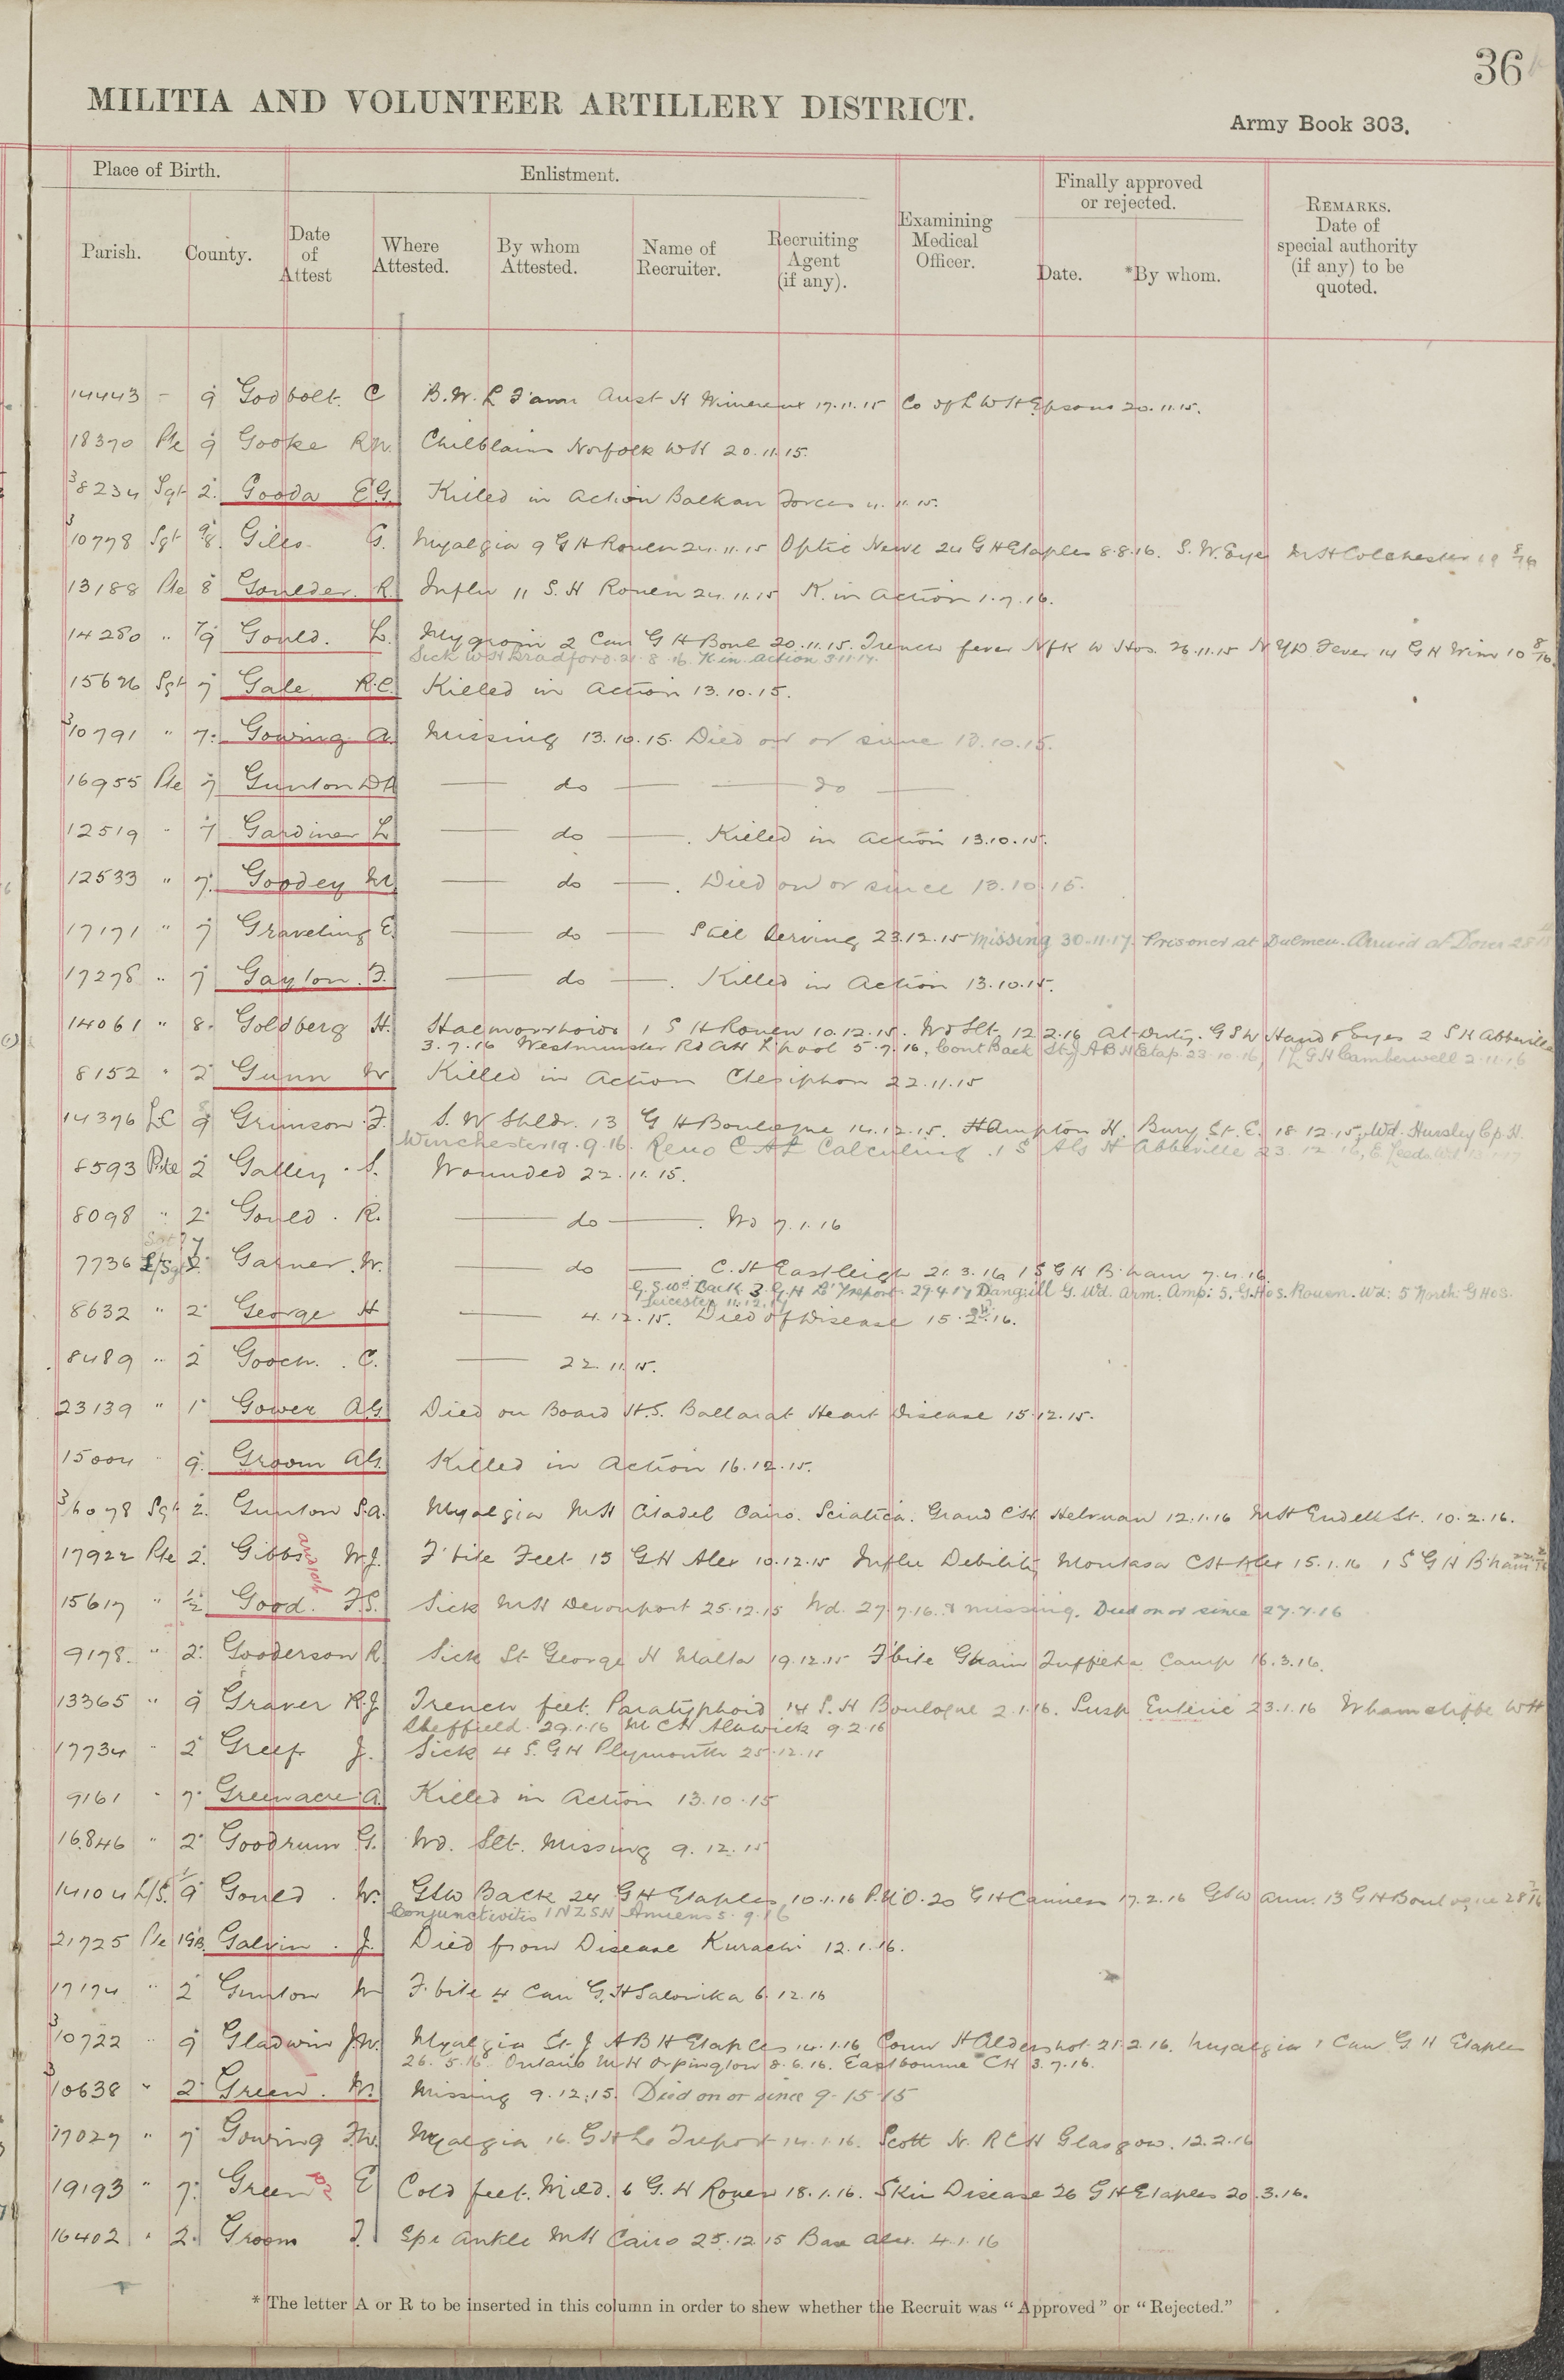 36
MILITIA AND VOLUNTEER ARTILLERY DISTRICT.
Army Book 303.
Place of Birth. Enlistment. Finally approved or rejected.
Parish. County. Date of Attest Where Attested. By whom Attested. Name of Recruiter. Recruiting Agent (if any). Examining Medical Officer. Date. *By whom. REMARKS. Date of special authority (if any) to be quoted.
14443 - 9 Godbolt. C B.W. L F'arm Aust H Wimereux 17.11.15 Co of L W H Epsom 20.11.15.
18370 Pte 9 Gooke R.W. Chilblains Norfolk WH 20.11.15.
3 8234 Sgt 2. Gooda E.G. Killed in Action Balkan Forces 11.11.15.
3 10778 Sgt 9/8. Giles. G. Myalgia 9 G H Rouen 24.11.15 Optic Neve 24 G H Etaples 8.8.16. S.W. Eye M H Colchester 19 8/16
13188 Pte 8 Goulder. R. Influ 11 S. H Rouen 24.11.15 K. in Action 1.7.16.
14280 " 7/9 Gould. L. 2 Can G H Boul 20.11.15. Trench fever Nfk W Hos. 26.11.15 N.Y.D Fever 14 G H Wim 10 8/16.
Sick W H Bradford 21.8.16. K in action 3.11.17.
15626 Sgt 7 Gale R.C. Killed in Action 13.10.15.
3 10791 " 7. Gowing A. Missing 13.10.15. Died on or since 13.10.15.
16955 Pte 7 Gunton D A — do — — do —
12519 " 7 Gardiner L — do —. Killed in Action 13.10.15.
12533 " 7. Goodey W. — do —. Died on or since 13.10.15.
17171 " 7 Graveling E. — do — Still Serving 23.12.15 Missing 30.11.17. Prisoner at Dulmen. Arrived at Dover 28
17278 " 7 Gayton. F. — do —. Killed in Action 13.10.15.
14061 " 8. Goldberg H. Haemorrhoids 1 S H Rouen 10.12.15. Wd Slt. 12.2.16 at Duty. GSW Hand & Eyes 2 S H Abbeville
3.7.16 Westminster Rd AH L'pool 5.7.16, Cont Back St J A B H Etap. 23.10.16, 1 L G H Camberwell 2.11.16
8152 " 2 Gunn W Killed in Action Ctesiphon 22.11.15
14376 L.C 9 Grimson. F. S. W Shldr. 13 G H Boulogne 14.12.15. Hampton H. Bury St. E. 18.12.15, Wd. Hursley Cp H.
Winchester 19.9.16. Reno 1 S H Abbeville 23.12.16,
8593 Pte 2 Galley. S. Wounded 22.11.15.
8098 " 2. Gould. R. — do —. Wd 7.1.16
7736 L/Sgt 2. Garner. W. — do —. C. H Eastleigh 21.3.16 1 S G H B'ham 7.4.16.
G.S. Wd Back 3 G.H Le Treport 27.4.17 G. Wd. Arm. Amp: 5. G. Hos. Rouen. Wd: 5 North: G Hos.
Leicester 14.12.17
8632 " 2 George H — 4.12.15. Died of Disease 15.2.16.
8489 " 2 Gooch. C. — 22.11.15.
23139 " 1 Gower A.G. Died on Board H.S. Ballarat Heart Disease 15.12.15.
15004 " 9. Groom A.G. Killed in Action 16.12.15.
3 6078 Sgt 2. Gunton S.A. Myalgia M H Citadel Cairo. Sciatica. Grand C H Helouan 12.1.16 M H Endell St. 10.2.16.
17922 Pte 2. Gibbs W.J. F'bite Feet 15 G H Alex 10.12.15 Influ Debility Montasa C H Alex 15.1.16 1 S G H B'ham
15617 " 1/2 Good. F.S. Sick M H Devonport 25.12.15 Wd. 27.7.16. & missing. Died on or since 27.7.16
9178. " 2. Gooderson R. Sick St George H Malta 19.12.15 F'bite Ghain Tuffieha Camp 16.3.16.
13365 " 9 Graver R.J. Trench feet. Paratyphoid 14 S. H Boulogne 2.1.16. Susp Enteric 23.1.16 Wharncliffe W H
Sheffield 29.1.16 M C H Alnwick 9.2.16
17734 " 2 Greef J. Sick 4 S. G H Plymouth 25.12.15
9161 " 7. Greenacre A. Killed in Action 13.10.15
16846 " 2 Goodrum G. Wd. Slt. Missing 9.12.15
14104 L/S. 9 Gould. W. GSW Back 24 G H Etaples 10.1.16 P.U.O. 20 G H Camiers 17.2.16 GSW arm. 13 G H Boulogne 28
Conjunctivitis 1 N Z S H Amiens 5.9.16
21725 Pte 1 G.B. Galvin. J. Died from Disease Kurachi 12.1.16.
17174 " 2 Gunton W F'bite 4 Can G. H Salonika 6.12.16
3 10722 " 9 Gladwin J.W. Myalgia St. J A B H Etaples 14.1.16 Conn H Aldershot 21.2.16. Myalgia 1 Can G H Etaples
26.5.16. Ontario M H Orpington 8.6.16. Eastbourne C H 3.7.16.
3 10638 " 2. Green. W. Missing 9.12.15. Died on or since 9-15-15
17027 " 7 Gowing F.W. Myalgia 16. G H Le Treport 14.1.16. Scott N. R C H Glasgow. 12.2.16
19193 " 7. Green E Cold feet. Mild. 6 G. H Rouen 18.1.16. Skin Disease 26 G H Etaples 20.3.16.
16402 " 2. Groom J. Spr Ankle M H Cairo 25.12.15 Bas Alex. 4.1.16
* The letter A or R to be inserted in this column in order to shew whether the Recruit was “Approved” or “Rejected.”